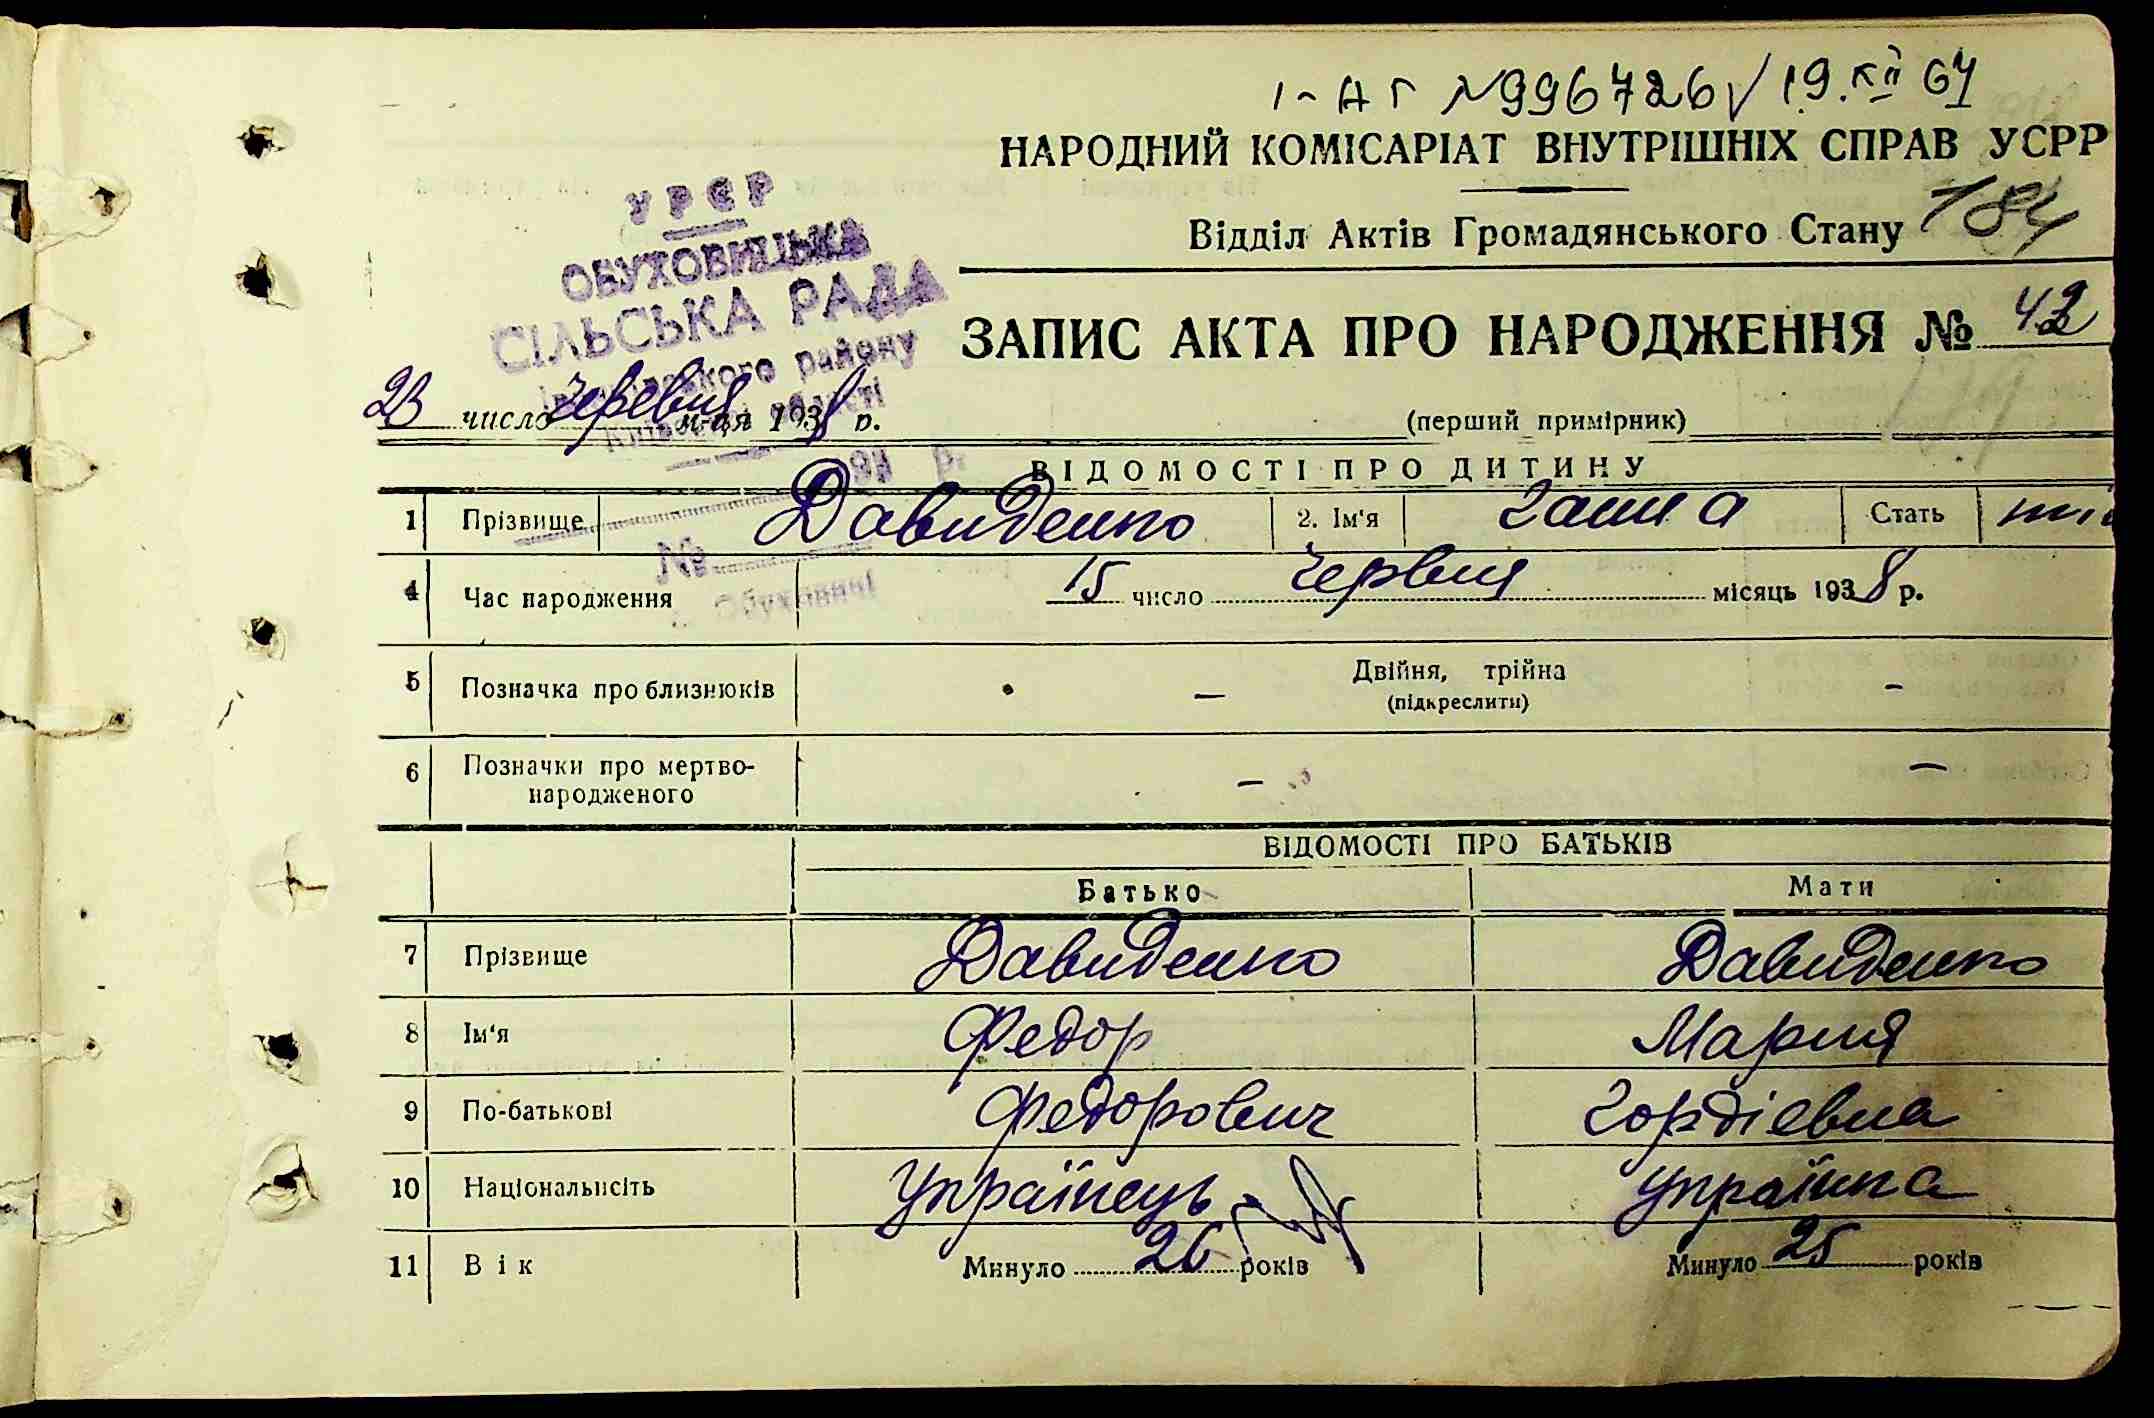 І-АГ №996726 19.XII 64
НАРОДНИЙ КОМІСАРІАТ ВНУТРІШНІХ СПРАВ УСРР
Відділ Актів Громадянського Стану 184
УРСР
ОБУХОВИЦЬКА
СІЛЬСЬКА РАДА
району
області
ЗАПИС АКТА ПРО НАРОДЖЕННЯ № 42
23 число червня м-ця 1938 р.
(перший примірник)
193 р.
ВІДОМОСТІ ПРО ДИТИНУ
1 Прізвище Давиденко 2. Ім'я Ганна Стать
№
4 Час народження 15 число червня місяць 1938 р.
с. Обуховичі
5 Позначка про близнюків — Двійня, трійна —
(підкреслити)
6 Позначки про мертво- — —
народженого
ВІДОМОСТІ ПРО БАТЬКІВ
Батько Мати
7 Прізвище Давиденко Давиденко
8 Ім'я Федор Мария
9 По-батькові Федорович Гордіевна
10 Національність Українець Українка
11 Вік Минуло 26 років Минуло 25 років